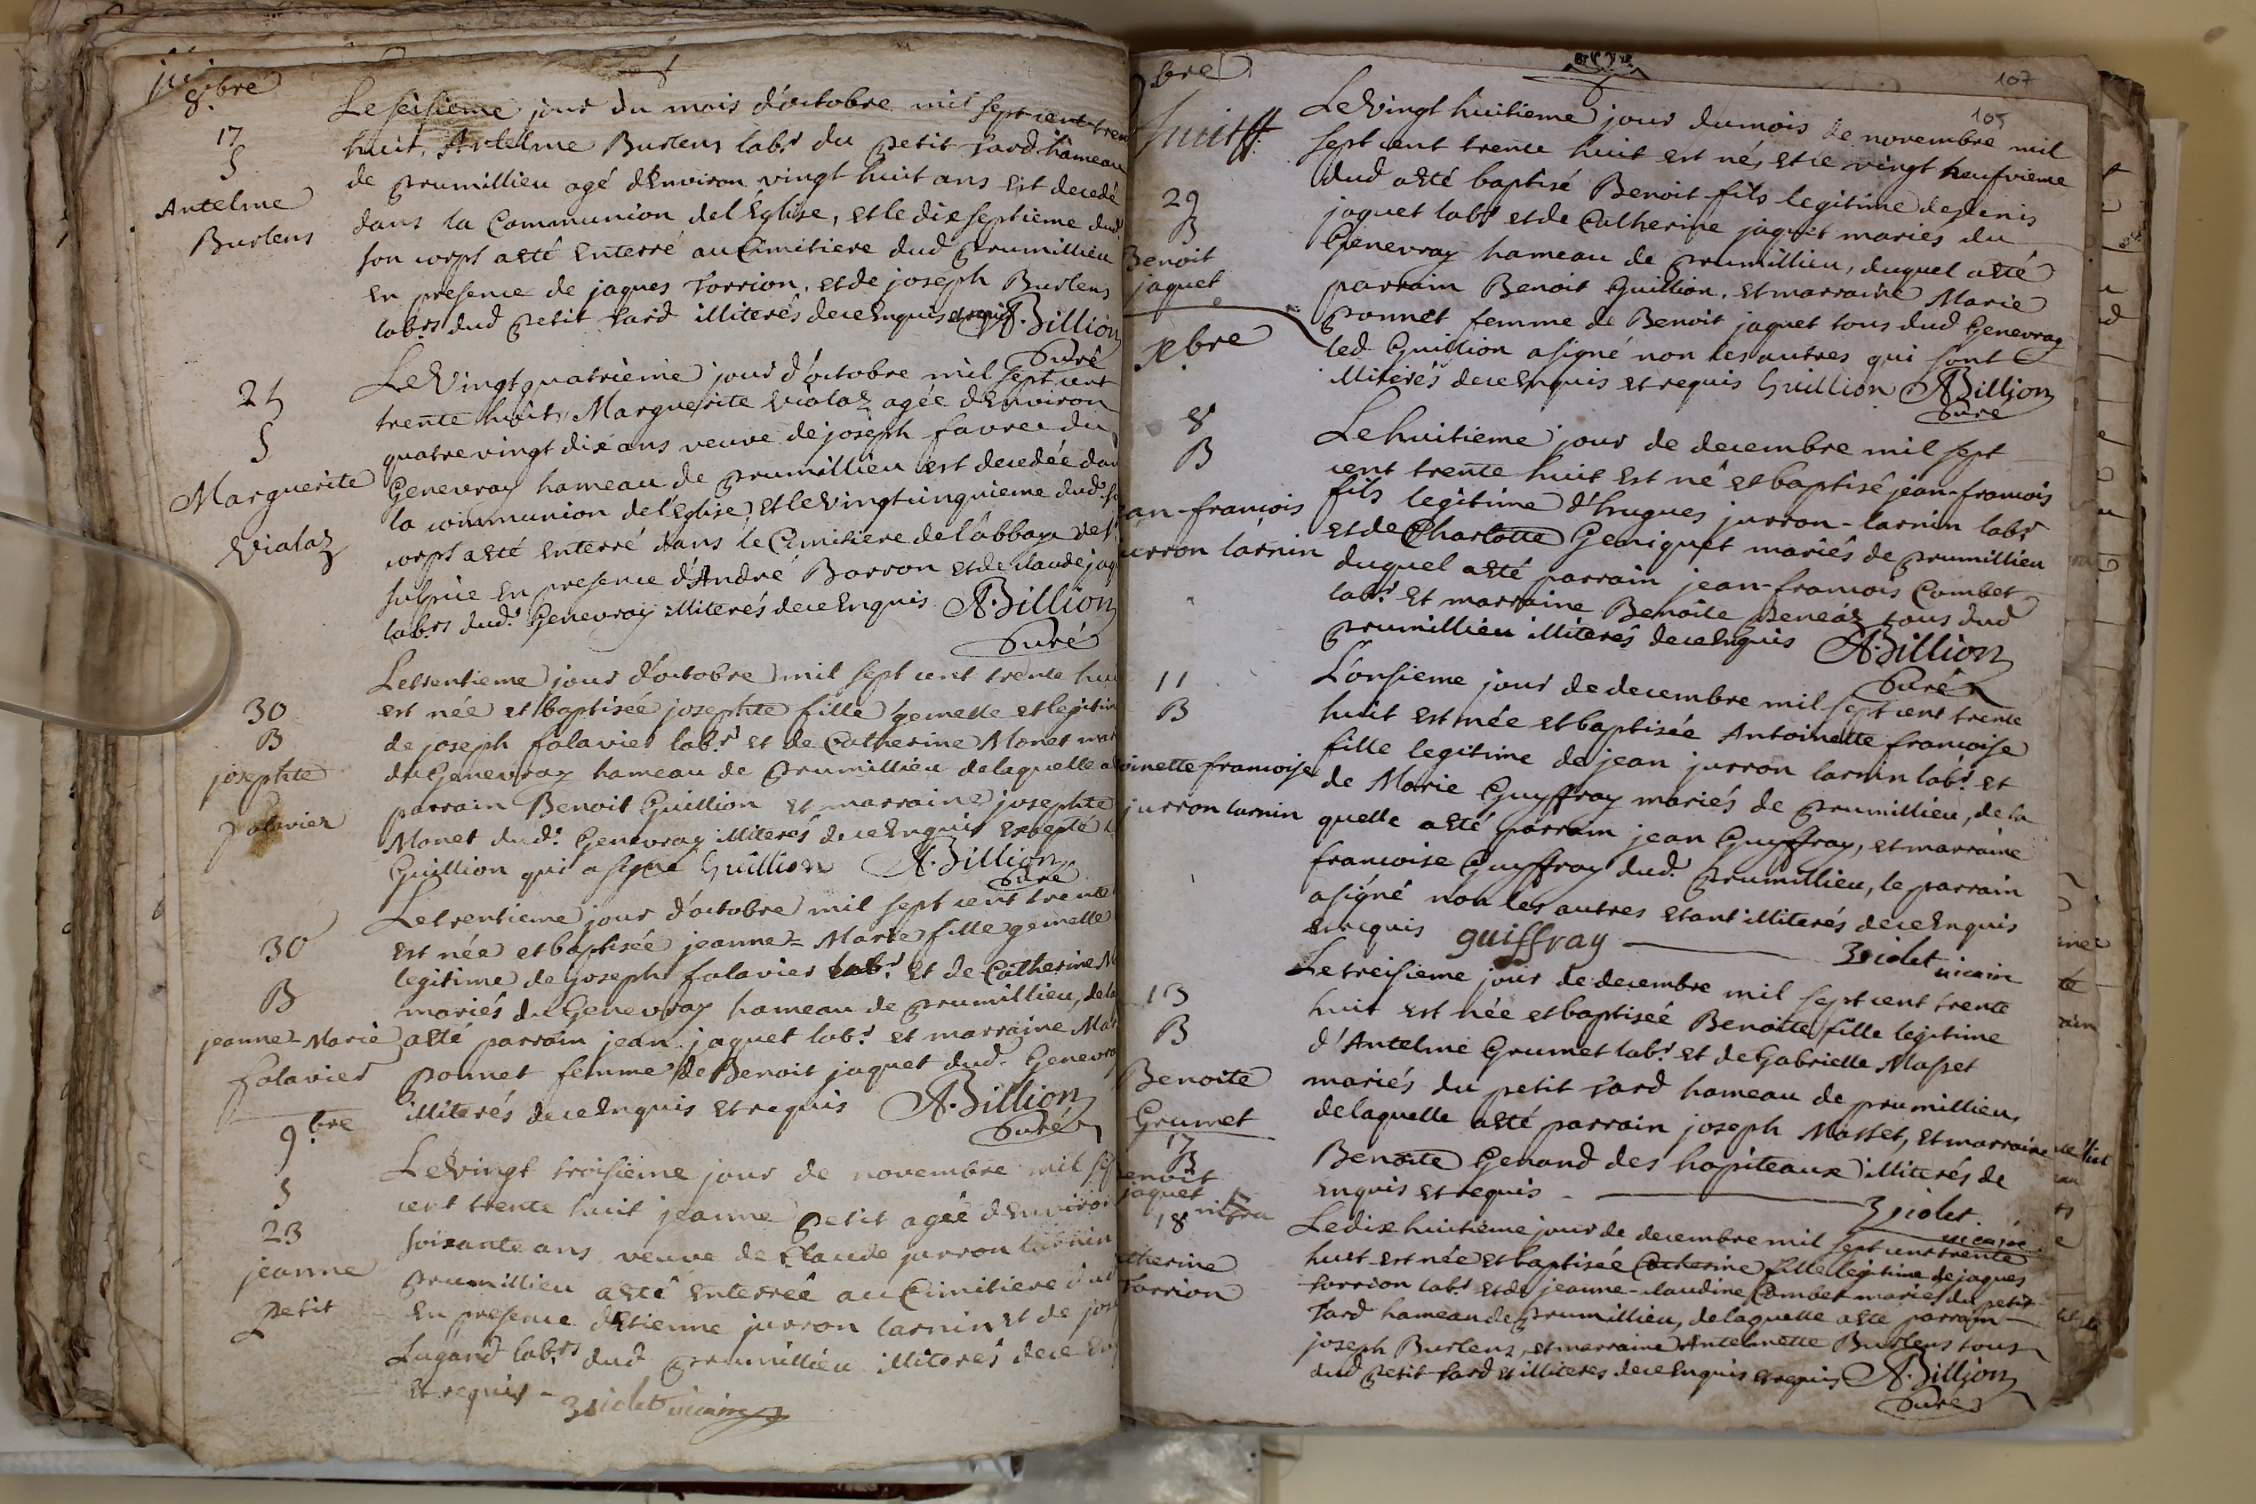 8.bre
17
S
Antelme
Burlens
Le seisieme jour du mois d'octobre mil sept cent tren
huit, Antelme Burlens labr. du petit Tard hameau
de prumillieu agé d'Environ vingt huit ans est decedé
dans la Communion de l'Eglise, et le dix septieme dud.
son corps a Eté Enterré au Cimitiere dud prumillieu
En presence de jaques Torrion, et de joseph Burlens
labrs. dud petit Tard illiterés de ce Enquis et requis A. Billion
Curé
24
S
Marguerite
Vialaz
Le Vingt quatrième jour d'octobre mil sept cent
trente huit, Marguerite Vialaz agée d'Environ
quatre vingt dix ans veuve de joseph favre du
Genevray hameau de prumillieu est decedée dan
la communion de l'Eglise, Et le Vingt cinquieme dud. so
corps a Eté Enterré dans le Cimitiere de l'abbaye de st
sulpice En presence d'André Borron et de Claude jaq
labrs dud. Genevray illiterés de ce Enquis A. Billion
Curé
30
B
josephte
falavier
Le trentieme jour d'octobre mil sept cent trente hui
est née et baptisée josephte fille gemelle et legitim
de joseph falavier labr. et de Catherine Monet mar
du Genevray hameau de prumillieu de laquelle a
parrain Benoit Guillion et marraine josephte
Monet dud. Genevray illiterés de ce Enquis Excepté l
Guillion qui a signé Guillion A. Billion
Curé
30
B
jeanne-Marie
falavier
Le trentieme jour d'octobre mil sept cent trente
est née et baptisée jeanne-Marie fille gemelle
legitime de joseph falavier labr. et de Catherine M
mariés du Genevray hameau de prumillieu, de la
a Eté parrain jean jaquet labr. et marraine Mar
ponnet femme de Benoit jaquet dud. Genevray
illiterés de ce Enquis et requis A. Billion
Curé
9.bre
S
23
jeanne
petit
Le Vingt troisieme jour de novembre mil sep
cent trente huit jeanne petit agée d'Environ
soixante ans veuve de Claude jurron larnin
prumillieu a Eté Enterrée au Cimitiere dud
En presence d'Etienne jurron larnin et de jose
Lugand labrs. dud prumillieu illiterés de ce En
et requis - Violet vicaire
bre
107
105
huit
29
B
Benoit
jaquet
Le Vingt huitieme jour du mois de novembre mil
sept cent trente huit est né, et le vingt neufvieme
dud a Eté baptisé Benoit fils legitime de denis
jaquet labr. et de Catherine jaquet mariés du
Genevray hameau de prumillieu, duquel a Eté
parrain Benoit Guillion, et marraine Marie
ponnet femme de Benoit jaquet tous dud Genevray
led Guillion a signé non les autres qui sont
illiterés de ce Enquis et requis Guillion A Billion
Curé
xbre
8
B
ean-francois
urron larnin
Le huitieme jour de decembre mil sept
cent trente huit est né et baptisé jean-francois
fils legitime d'hugues jurron-larnin labr.
et de Charlotte Geniquet mariés de prumillieu
duquel a Eté parrain jean-francois Combet
labr. et marraine Benoite Beneaz tous dud
prumillieu illiterés de ce Enquis A. Billion
Curé
11
B
oinette francoise
jurron larnin
L'onsieme jour de decembre mil sept cent trente
huit est née et baptisée Antoinette francoise
fille legitime de jean jurron larnin labr. et
de Marie Guyffray mariés de prumillieu, de la
quelle a Eté parrain jean Guyffray, et marraine
francoise Guyffray dud. prumillieu, le parrain
a signé non les autres etant illiterés de ce Enquis
et requis guiffray Violet vicaire
13
B
Benoite
Grumet
Le treisieme jour de decembre mil sept cent trente
huit est née et baptisée Benoite fille legitime
d'Antelme Grumet labr. et de Gabrielle Masset
mariés du petit Tard hameau de prumillieu,
de laquelle a Eté parrain joseph Masset, et marraine
Benoite Genand des hopiteaux illiterés de
Enquis et requis - Violet.
vicaire
17
B
enoit
jaquet infra
18
therine
Torrion
Le dix huitieme jour de decembre mil sept cent trente
huit est née et baptisée Catherine fille legitime de jaques
Torrion labr. et de jeanne-claudine Combet mariés du petit
Tard hameau de prumillieu, de laquelle a Eté parrain
joseph Burlens, et marraine Antelmette Burlens tous
dud petit Tard et illiteres de ce Enquis et requis A. Billion
Curé